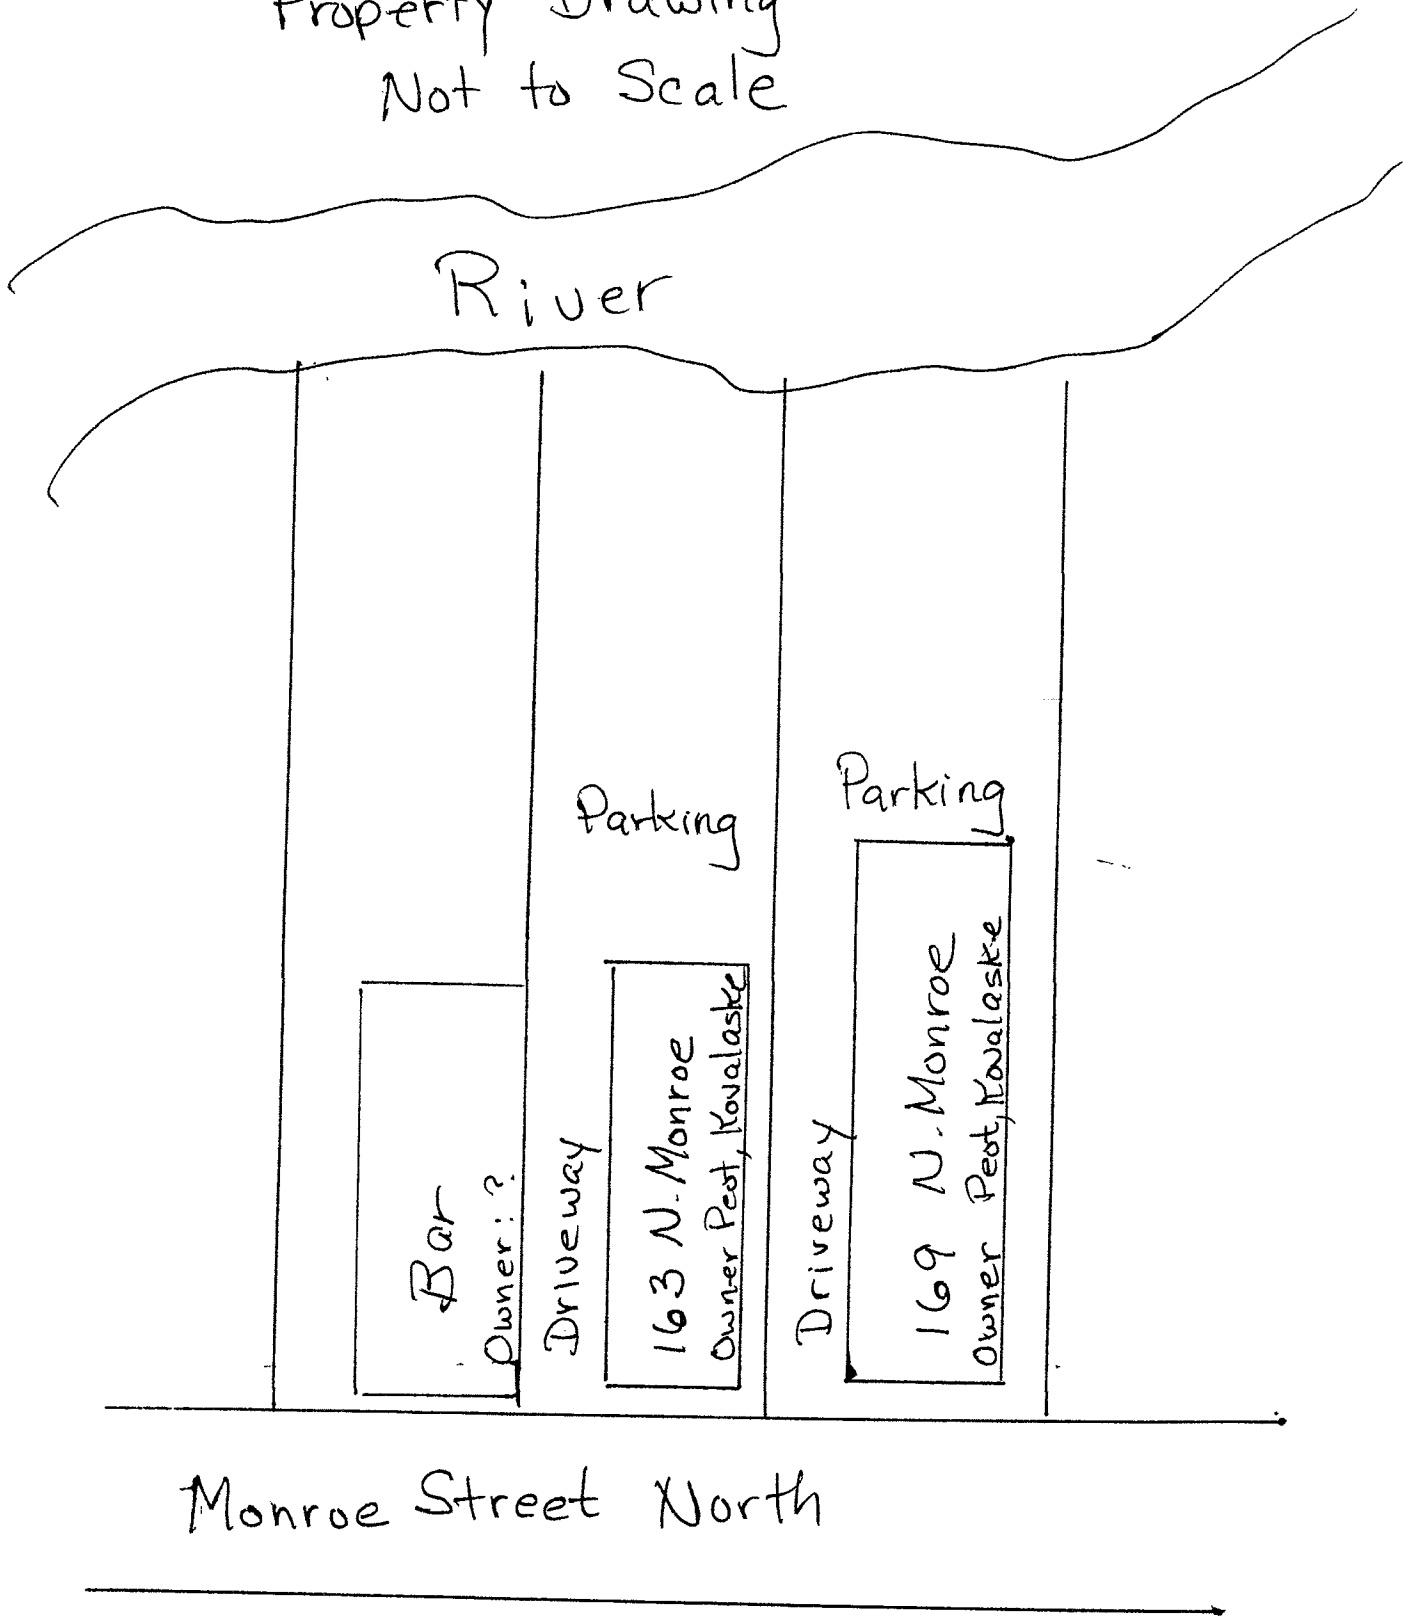 Property Drawing
Not to Scale
River
Parking
Parking
Bar
Owner: ?
Driveway
163 N. Monroe
Owner Peot, Kovalaske
Driveway
169 N. Monroe
Owner Peot, Kovalaske
Monroe Street North